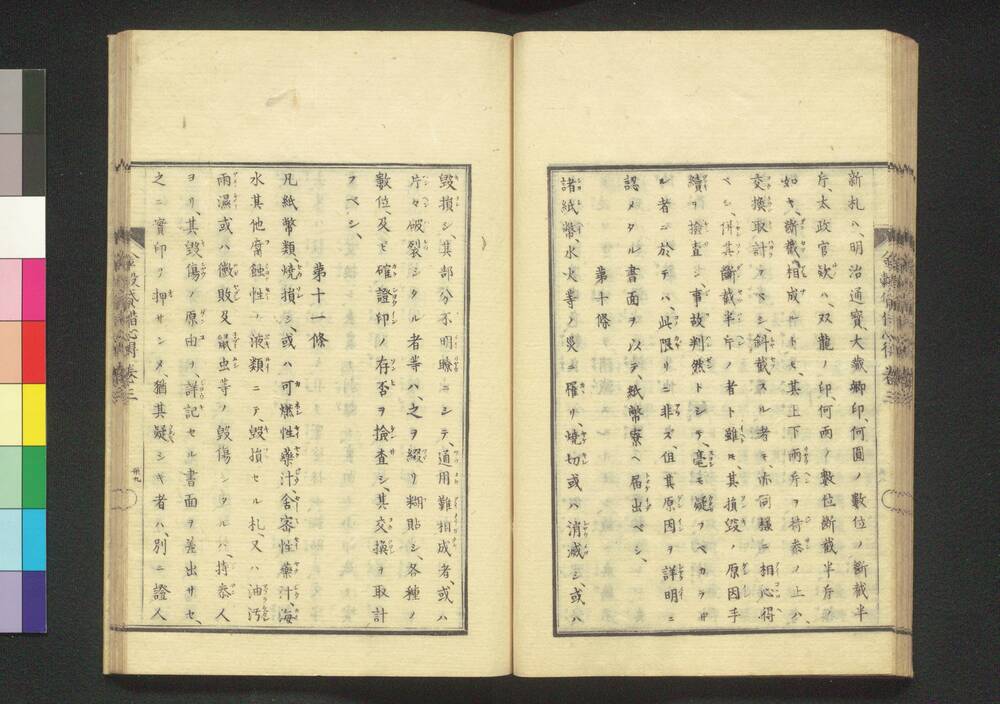 新札ハ、明治通寳、大藏卿印、何圓ノ數位ノ斷截半
斤、太政官歀ハ、双龍ノ印、何兩ノ數位斷截半斤ノ
如キ、斷截相成ルトモ、其上下兩斤ヲ持叅ノ上ハ、
交換取計フベシ、斜截スル者モ、亦同樣ニ相心得
ベシ、併其斷截半斤ノ者ト雖モ、其損毀ノ原因手
續ヲ撿査シ、事故判然トシテ、毫モ疑フベカラザ
ル者ニ於テハ、此限リニ非ズ、但其原因ヲ詳明ニ
認メタル書面ヲ以テ、紙幣寮ヘ届出ベシ、
第十條
諸紙幣、水火等ノ災ニ罹リ、燒切或ハ消滅シ、或ハ
毀損シ、其部分不明瞭ニシテ、通用難相成者、或ハ
片々破裂シタル者等ハ、之ヲ綴リ糊貼シ、各種ノ
數位、及ビ確證印ノ存否ヲ撿査シ、其交換ヲ取計
フベシ、
第十一條
凡紙幣類、燒損シ、或ハ可燃性藥汁、舍密性藥汁、海
水其他腐蝕性ノ液類ニテ、毀損セル札、又ハ油汚
雨濕或ハ黴敗及䑕虫等ノ毀傷シタルハ、持叅人
ヨリ、其毀傷ノ原由ヲ、詳記セル書面ヲ差出サセ、
之ニ實印ヲ押サシメ、猶其疑シキ者ハ、別ニ證人